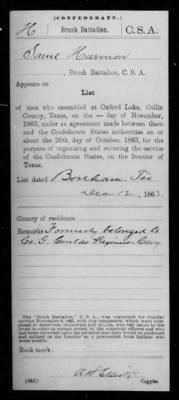 (CONFEDERATE.)
H Brush Battalion. C.S.A.
Saml Harmon
, Brush Battalion, C. S. A.
Appears on
List
of men who assembled at Oxford Lake, Collin
County, Texas, on the — day of November,
1863, under an agreement made between them
and the Confederate States authorities on or
about the 26th day of October, 1863, for the
purpose of organizing and entering the service
of the Confederate States, on the frontier of
Texas.
List dated Bonham, Tex
Dec 12, 1863.
County of residence
Remarks Formerly belonged to
Co. G. Goulds Regiment Cavy
Book mark:
A. H. Elliott
Copyist.